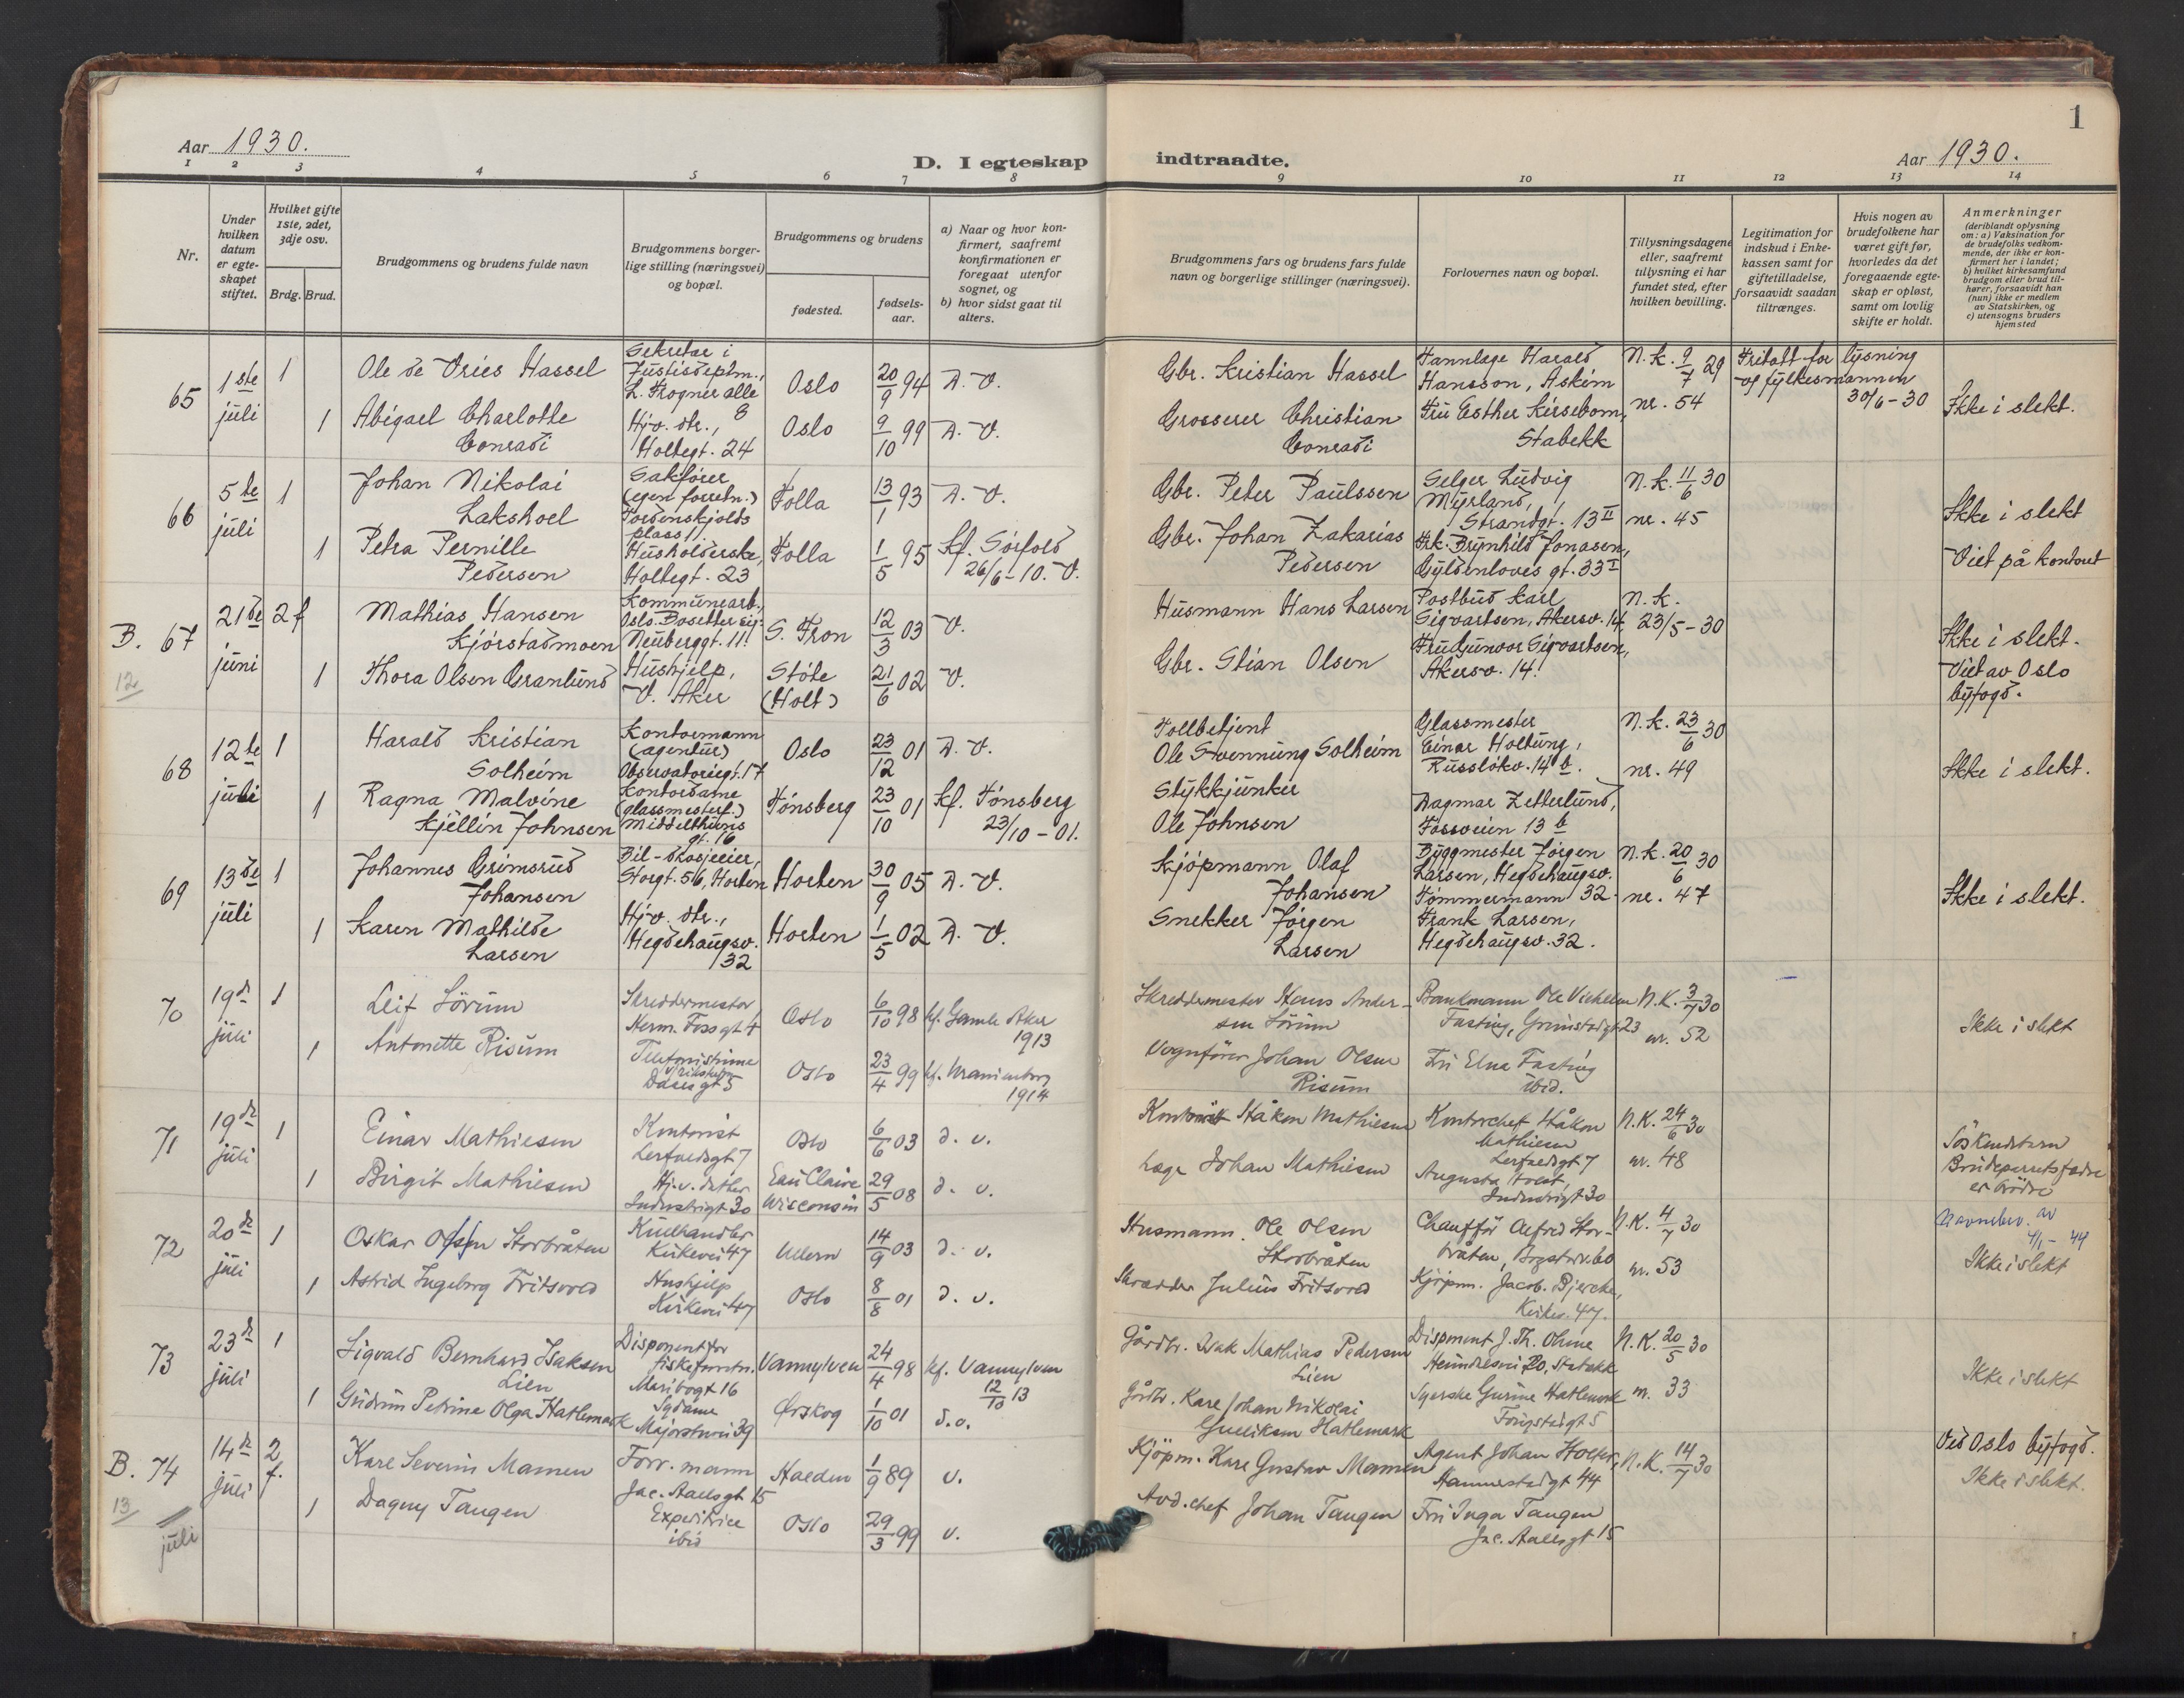 1
Aar 1930.
D. I egteskap indtraadte.
Aar 1930.
1 2 3 4 5 6 7 8 9 10 11 12 13 14
Nr.
Under hvilken datum er egteskapet stiftet.
Hvilket gifte 1ste, 2det, 3dje osv.
Brdg. Brud.
Brudgommens og brudens fulde navn
Brudgommens borgerlige stilling (næringsvei) og bopæl.
Brudgommens og brudens
fødested.
fødselsaar.
a) Naar og hvor konfirmert, saafremt konfirmationen er foregaat utenfor sognet, og
b) hvor sidst gaat til alters.
Brudgommens fars og brudens fars fulde navn og borgerlige stillinger (næringsvei).
Forlovernes navn og bopæl.
Tillysningsdagene eller, saafremt tillysning ei har fundet sted, efter hvilken bevilling.
Legitimation for indskud i Enkekassen samt for giftetilladelse, forsaavidt saadan tiltrænges.
Hvis nogen av brudefolkene har været gift før, hvorledes da det foregaaende egteskap er opløst, samt om lovlig skifte er holdt.
Anmerkninger (deriblandt oplysning om: a) Vaksination for de brudefolks vedkommende, der ikke er konfirmert her i landet; b) hvilket kirkesamfund brudgom eller brud tilhører, forsaavidt han (hun) ikke er medlem av Statskirken, og c) utensogns bruders hjemsted
65 1ste juli 1 Ole de Vries Hassel Sekretær i Justisdeptm., L. Frogner allé 8 Oslo 20/9 94 D. V. Gbr. Kristian Hassel Tannlæge Harald Hansson, Askim N.k. 9/7 29 nr. 54 Fritatt for lysning af fylkesmannen 30/6-30 Ikke i slekt.
1 Abigael Charlotte Conradi Hjv. dtr., Holtegt. 24 Oslo 9/10 99 D. V. Grosserer Christian Conradi Fru Esther Kirsebom, Stabekk
66 5te juli 1 Johan Nikolai Lakshoel Sakfører (egen forretn.) Tordenskjolds plass 1. Folla 13/1 93 D. V. Gbr. Peter Paulssen Selger Ludvig Myrland, Strandgt. 13 II N.k. 11/6 30 nr. 45 Ikke i slekt
1 Petra Pernille Pedersen Husholderske, Holtegt. 23 Folla 1/5 95 kf. Sørfold 26/6-10. V. Gbr. Johan Zakarias Pedersen Frk. Brynhild Jonasen, Gyldenløves gt. 33 I Viet på kontoret
B. 67 21de juni 2 f Mathias Hansen Kjørstadmoen Kommunearb., Neuberggt. 11. S. Fron 12/3 03 V. Husmann Hans Larsen Postbud Karl Sigvartsen, Akersv. 14 N.k. 23/5-30 Ikke i slekt.
12 1 Thora Olsen Granlund Hushjelp, V. Aker Støle (Holt) 21/6 02 V. Gbr. Stian Olsen Fru Gunvor Sigvartsen, Akersv. 14. Viet av Oslo byfogd.
68 12te juli 1 Harald Kristian Solheim Kontormann (agentur) Observatoriegt. 17 Oslo 23/12 01 D. V. Tollbetjent Ole Svennung Solheim Glassmester Einar Holtung, Russløkv. 14 b. N.k. 23/6 30 nr. 49 Ikke i slekt.
1 Ragna Malvine Kjellin Johnsen Kontordame (glassmesterf.) Middelthuns gt. 16 Tønsberg 23/10 01 kf. Tønsberg 23/10-01. Stykkjunker Ole Johnsen Dagmar Zetterlund, Fossveien 13 b
69 13de juli 1 Johannes Grimsrud Johansen Bil-drosjeeier, Storgt. 56, Horten Horten 30/9 05 D. V. Kjøpmann Olaf Johansen Byggmester Jørgen Larsen, Hegdehaugsv. 32 N.k. 20/6 30 nr. 47 Ikke i slekt.
1 Karen Mathilde Larsen Hjv. dtr., Hegdehaugsv. 32 Horten 1/5 02 D. V. Snekker Jørgen Larsen Tømmermann Frank Larsen, Hegdehaugsv. 32.
70 19de juli 1 Leif Sørum Skreddermester Herm. Foss gt 4 Oslo 6/10 98 kf. Gamle Aker 1913 Skreddermester Hans Andersen Sørum Bankmann Ole Vilhelm Fasting, Grimstadgt 23 N.K. 3/7 30 nr. 52 Ikke i slekt
1 Antonette Risum Telefonistinne Daasgt 5 Oslo 23/4 99 kf. Uranienborg 1914 Vognfører Johan Olsen Risum Fru Elna Fasting ibid.
71 19de juli 1 Einar Mathiesen Kontorist Lerfaldsgt 7 Oslo 6/6 03 d. v. Kontorist Håkon Mathiesen Kontorchef Håkon Mathiesen Lerfaldsgt 7 N.K. 24/6 30 nr. 48 Søskendebarn Brudeparrets fædre er brødre
1 Birgit Mathiesen Hj.v. datter Industrigt 30 Eau Claire Wisconsin 29/5 08 d. v. Læge Johan Mathiesen Augusta Industrigt 30
72 20de juli 1 Oskar Olsen Storbråten Kulhandler Kirkevei 47 Ullern 14/9 03 d. v. Husmann Ole Olsen Storbråten Chauffør Alfred Storbråten, Bogstadv. 60 N.K. 4/7 30 nr. 53 Navnebev. av 4/1-44 Ikke i slekt
1 Astrid Ingeborg Fritsvold Hushjelp Kirkevei 47 Oslo 8/8 01 d. v. Skrædder Julius Fritsvold Kjøpm. Jacob Bjercke, Kirkev. 47.
73 23de juli 1 Sigvald Bernhard Isaksen Lien Disponent for fiskeforretn. Maribogt 16 Vannylven 24/4 98 kf. Vannylven 12/10 13 Gårdbr. Isak Mathias Pedersen Lien Disponent J. Th. Ohme 20, Stabekk N.K. 20/5 30 nr. 33 Ikke i slekt
1 Gudrun Petrine Olga Hatlemark Sydame Majorstuvei 39 Ørskog 1/10 01 d.v. Gårdbr. Kare Johan Nikolai Gulliksen Hatlemark Syerske Gurine Hatlemark
B. 74 14de juli 2 f. Kare Severin Mamen Forr. mann Jac. Aallsgt 15 Halden 1/9 89 v. Kjøpm. Kare Gustav Mamen Agent Johan Holter, Hammerstadgt 44 N.K. 14/7 30 Ved Oslo byfogd. Ikke i slekt.
13 juli 1 Dagny Tangen Expeditrice ibid Oslo 29/3 99 v. Avd. chef Johan Tangen Fru Inga Tangen Jac. Aallsgt 15